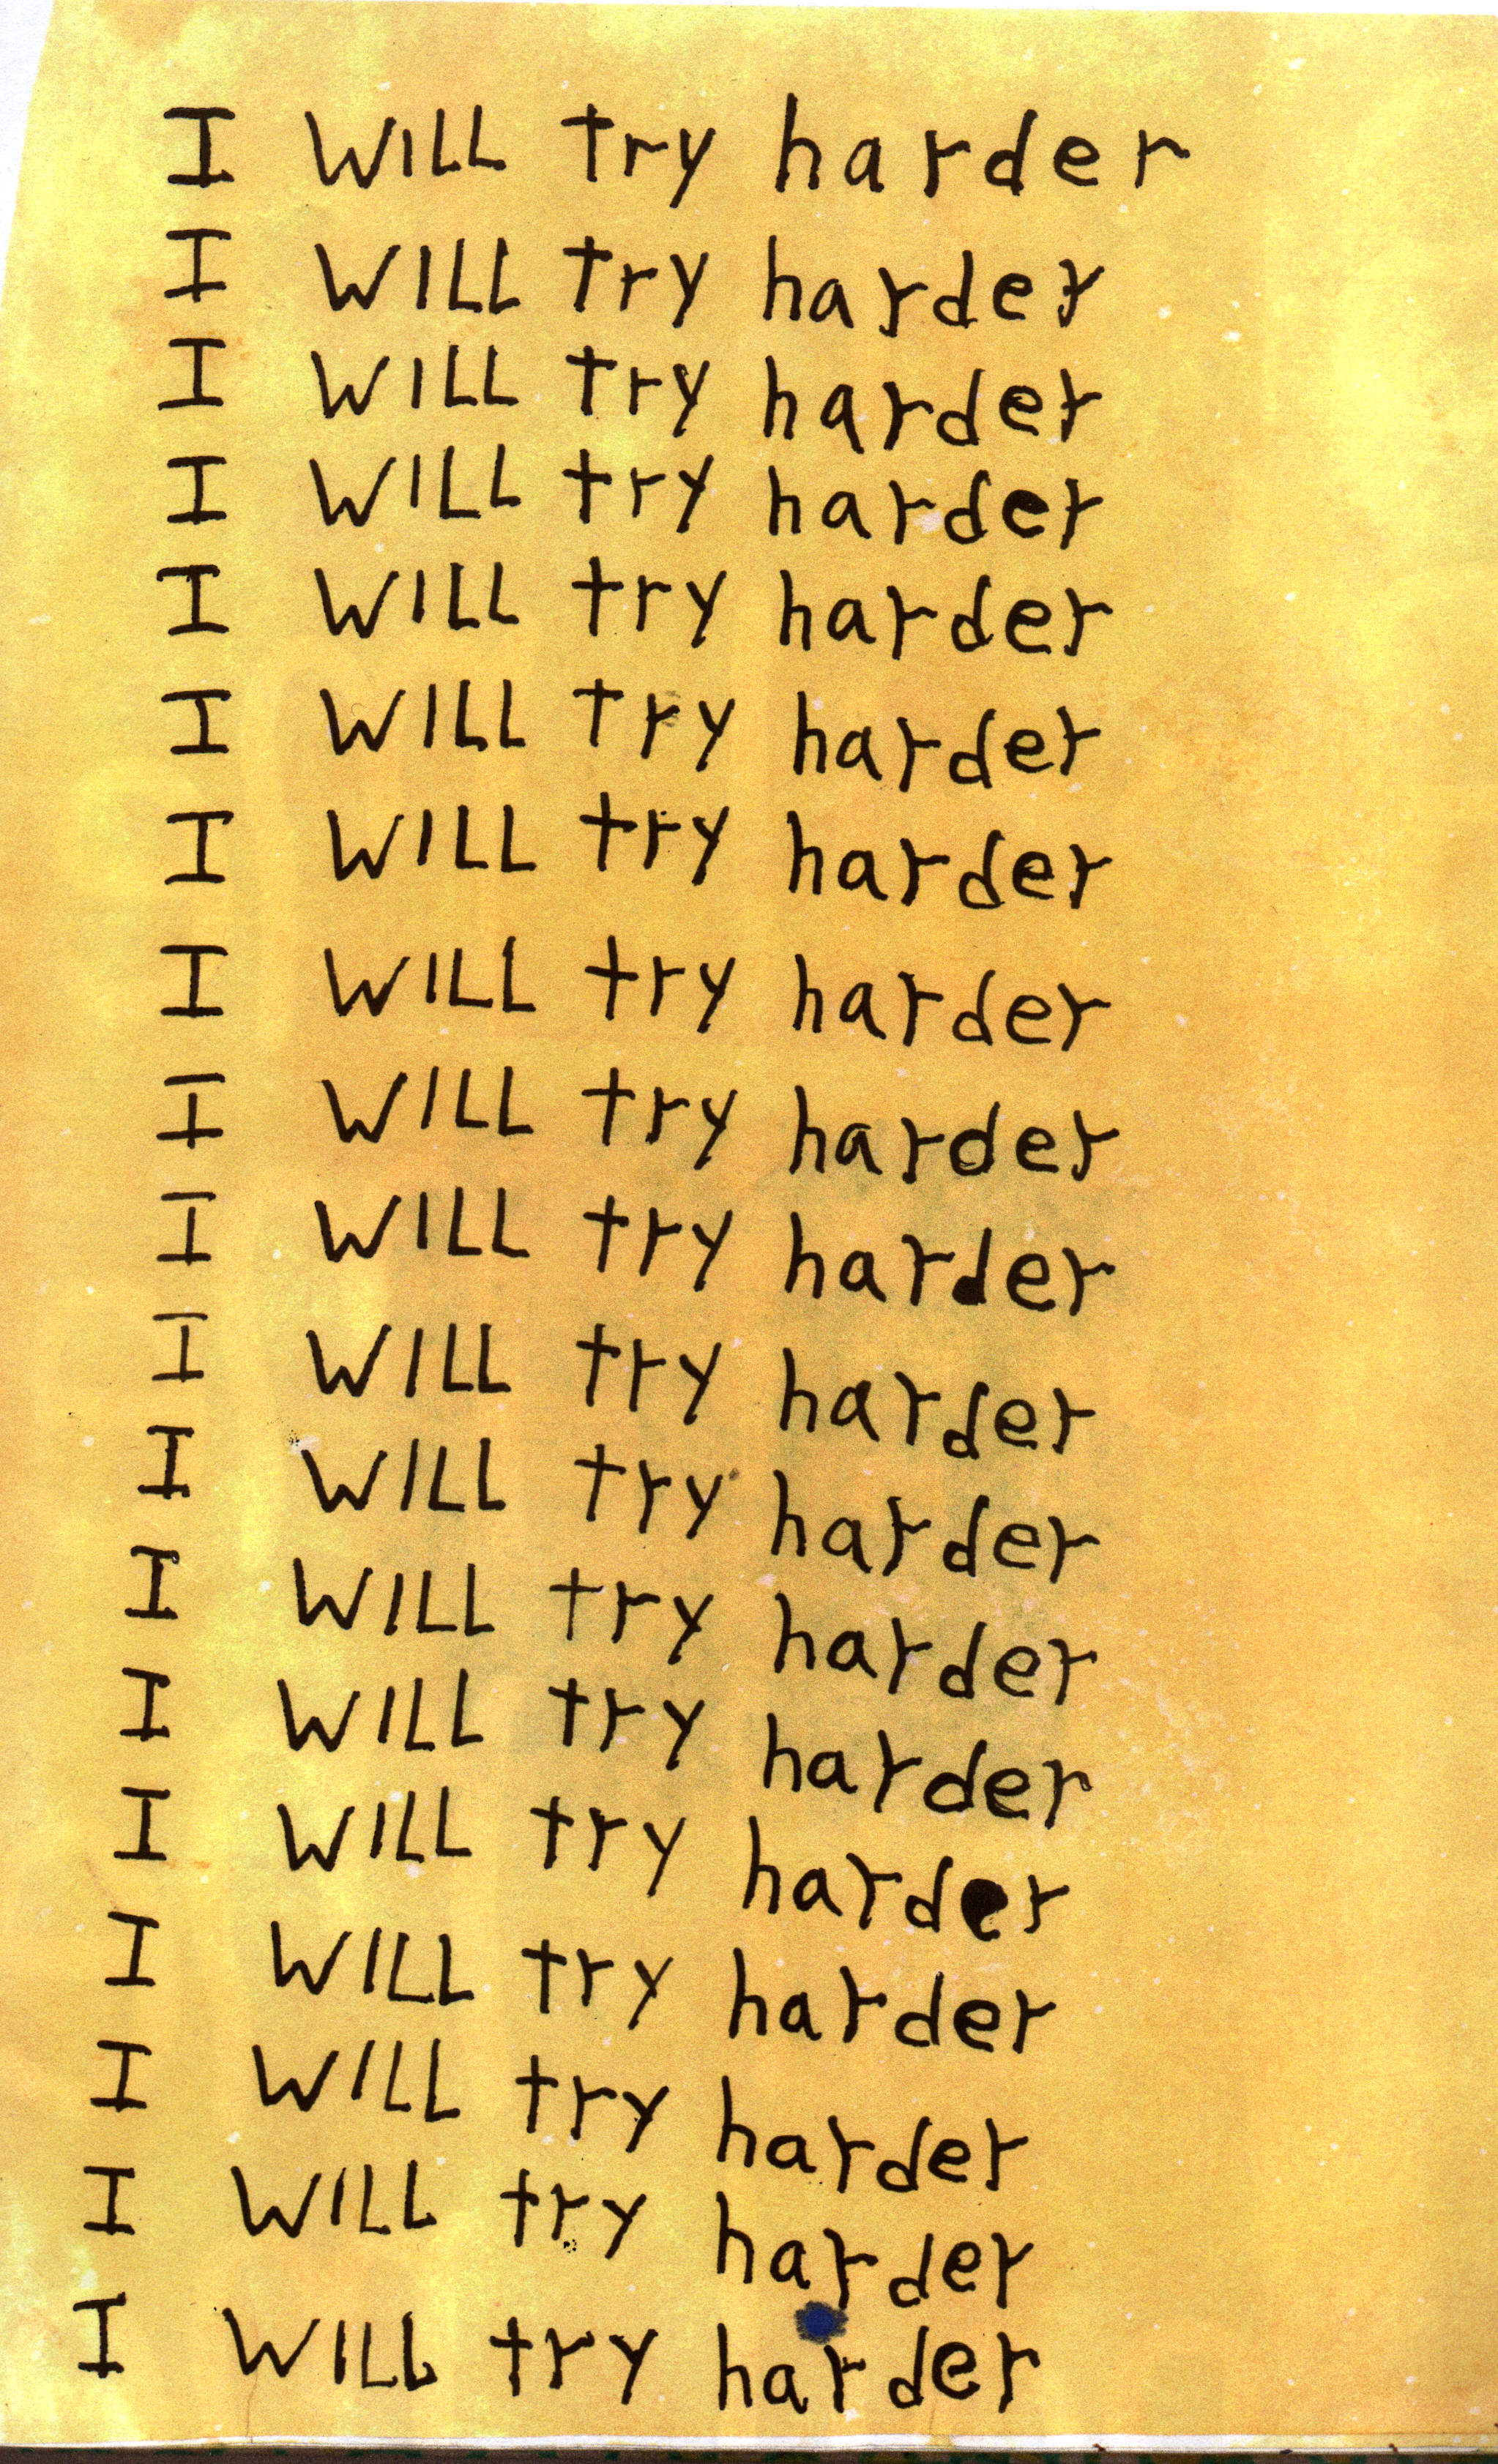 I WILL try harder
I WILL try harder
I WILL try harder
I WILL try harder
I WILL try harder
I WILL try harder
I WILL try harder
I WILL try harder
I WILL try harder
I WILL try harder
I WILL try harder
I WILL try harder
I WILL try harder
I WILL try harder
I WILL try harder
I WILL try harder
I WILL try harder
I WILL try harder
I WILL try harder